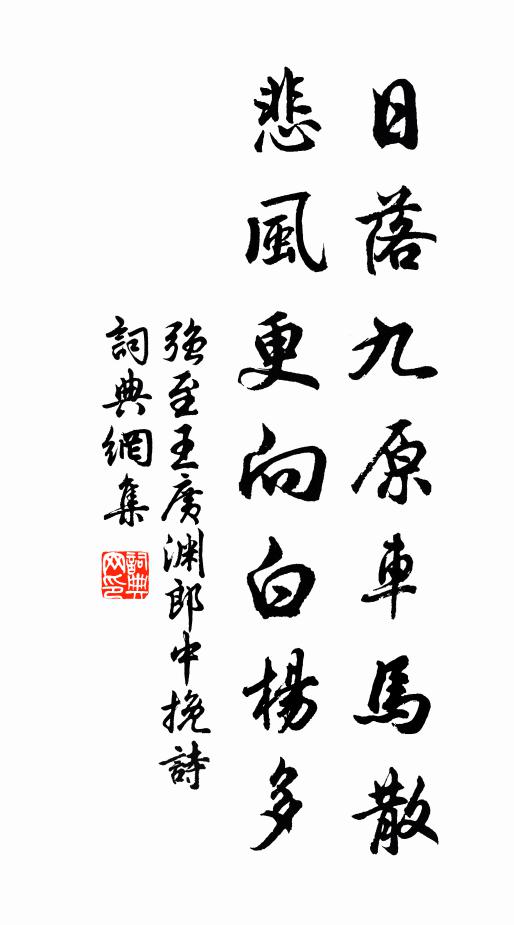 日落九原車馬散
悲風更向白楊多
強至王廣淵郎中挽詩
詞典網集
詞典网印